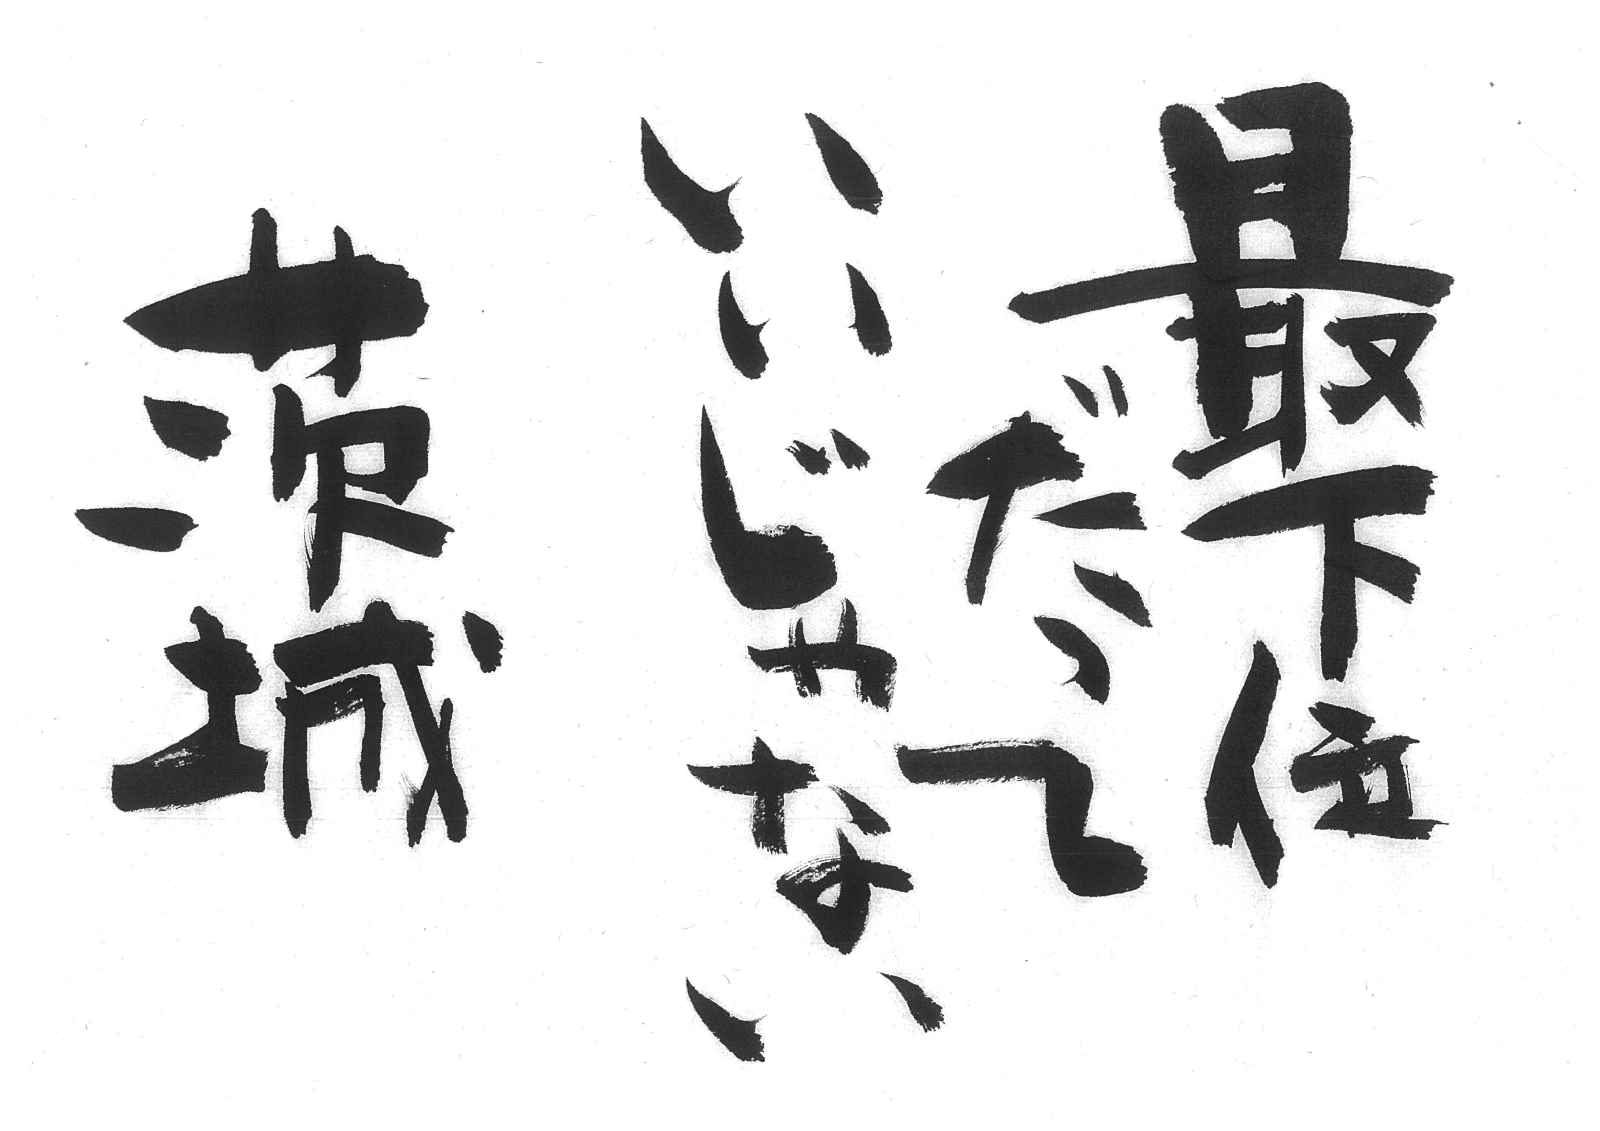 最下位
だって
いいじゃない
茨城